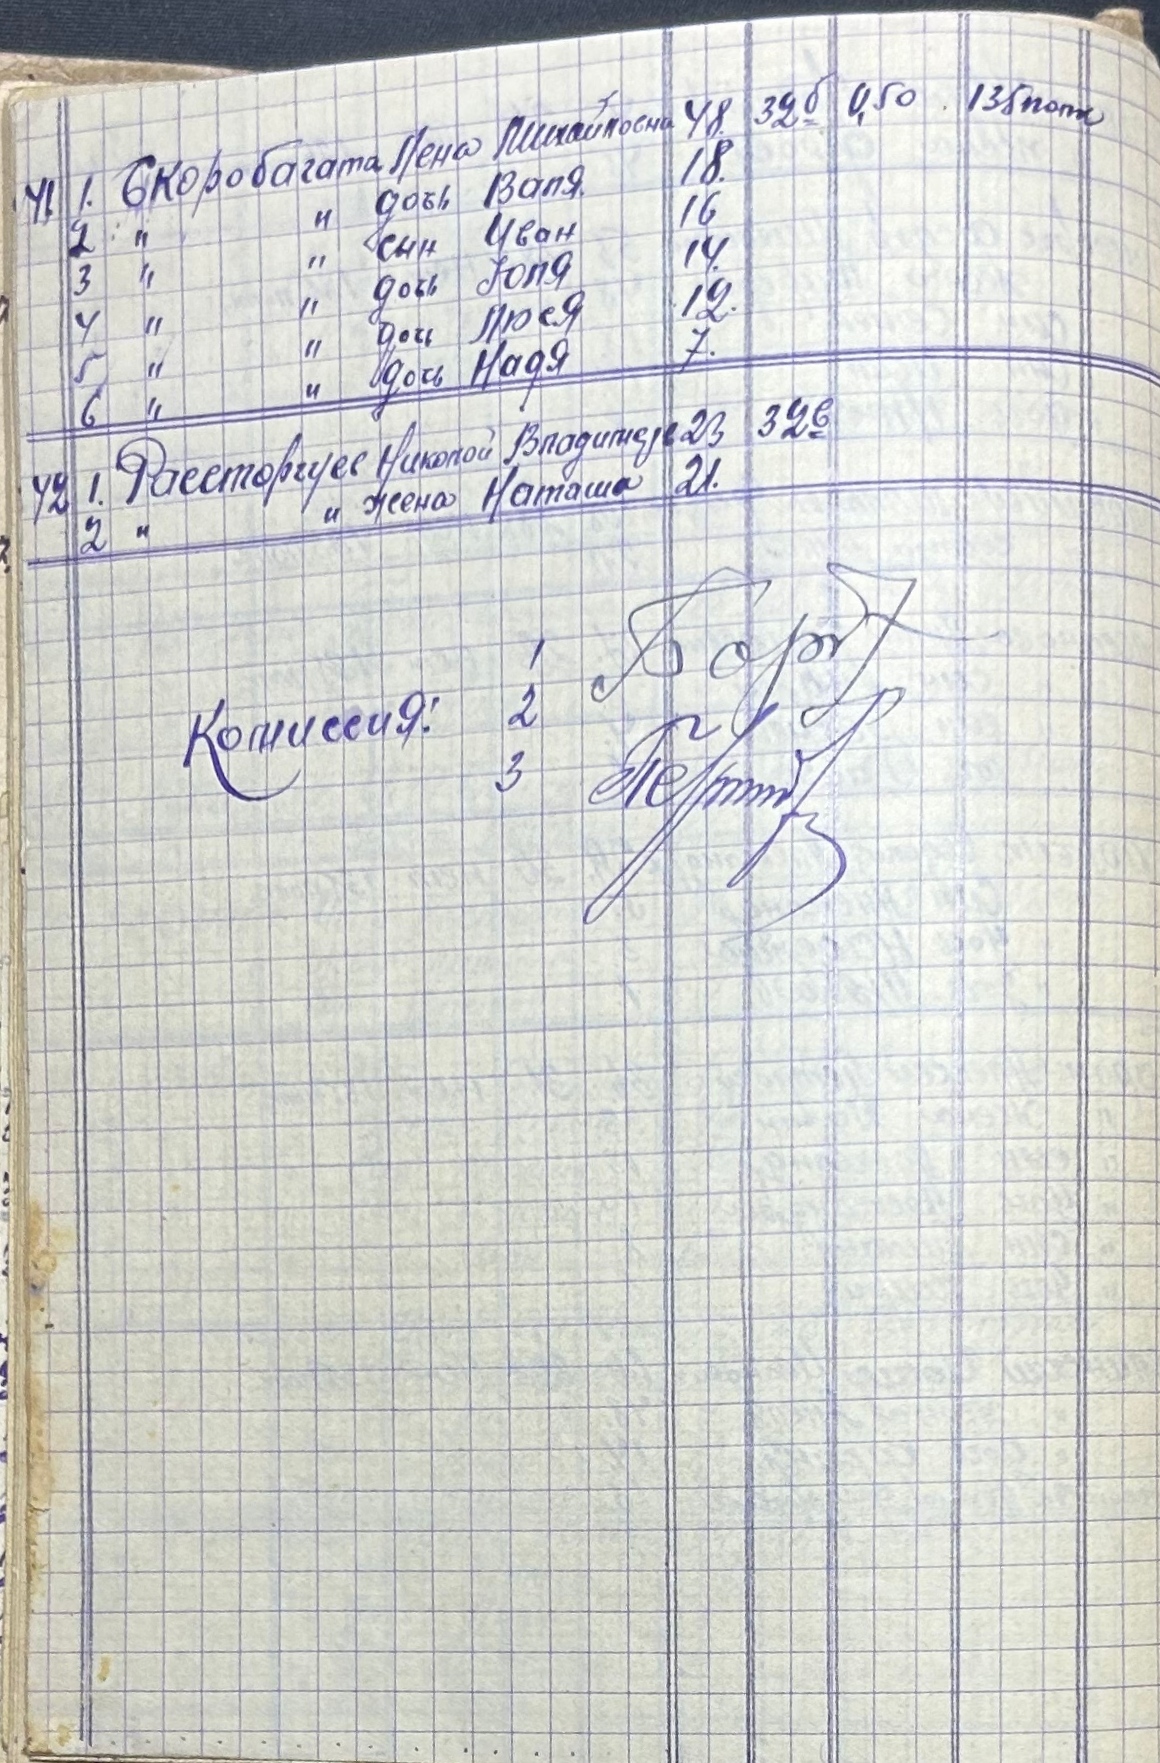 41 1. Скоробагата Лена Михайловна 48. 32б 0,50. 135 поти
2 " " дочь Валя. 18.
3 " " сын Иван 16
4 " " дочь Юля 14.
5 " " дочь Люся 12.
6 " " дочь Надя 7.
42 1. Рассторгуев Николай Владимер 23 32в
2 " " жена Наташа 21.
Комиссия: 1
2
3